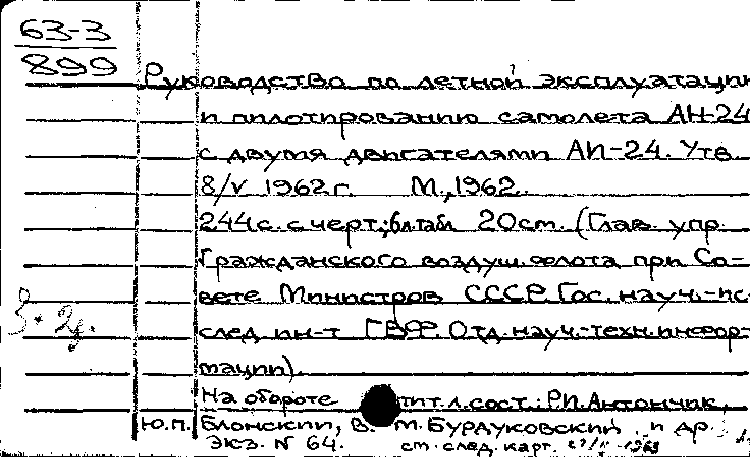 63-3
899
Руководство по летной эксплуатации
и пилотированию самолета АН-24
с двумя двигателями АИ-24. Утв.
8/V 1962 г. М., 1962.
244 с. с черт.; 6 л. табл. 20 см. (Глав. упр.
Гражданского воздуш. флота при Со-
вете Министров СССР. Гос. науч.-ис
след. ин-т ГВФ. Отд. науч.-техн. инфор-
мации).
На обороте тит. л. сост.: Р.И. Антончик,
Ю.П. Блонский, В. М. Бурдуковский и др.
Экз. N 64. см. след. карт.